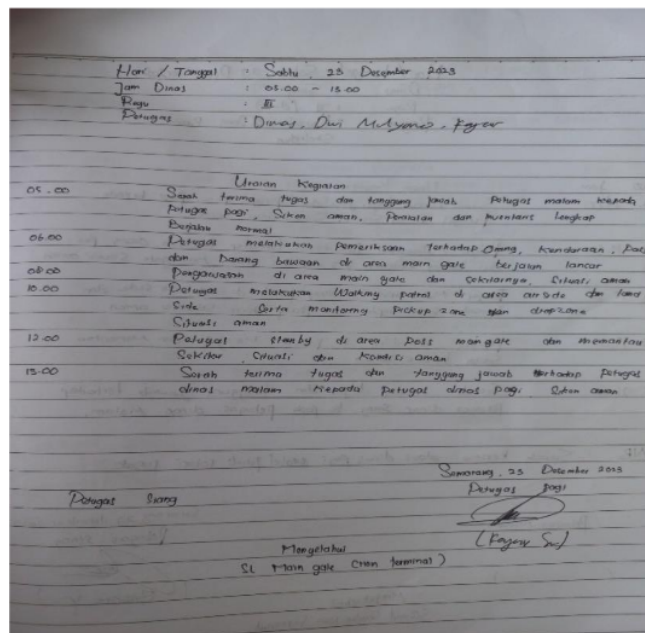 Hari / Tanggal : Sabtu, 23 Desember 2023
Jam Dinas : 05.00 - 15.00
Regu : III
Petugas : Dimas, Dwi Mulyono,
Uraian Kegiatan
05.00 Serah terima tugas dan tanggung jawab Petugas malam kepada
Petugas pagi, Sikon aman, Peralatan dan inventaris lengkap
Berjalan normal
06.00 Petugas melakukan pemeriksaan terhadap Orang, kendaraan, Pas
dan barang bawaan di area main gate berjalan lancar
08.00 Pengawasan di area main gate dan sekitarnya, Situasi aman
10.00 Petugas melakukan Walking patrol di area airside dan land
Side serta monitoring Pickup zone dan dropzone
Situasi aman
12.00 Petugas stanby di area Poss main gate dan memantau
Sekitar, Situasi dan Kondisi aman
15.00 Serah terima tugas dan tanggung jawab terhadap Petugas
dinas malam kepada petugas dinas pagi Sikon aman
Semarang, 23 Desember 2023
Petugas Siang Petugas Pagi
Mengetahui
SL Main gate (non terminal)